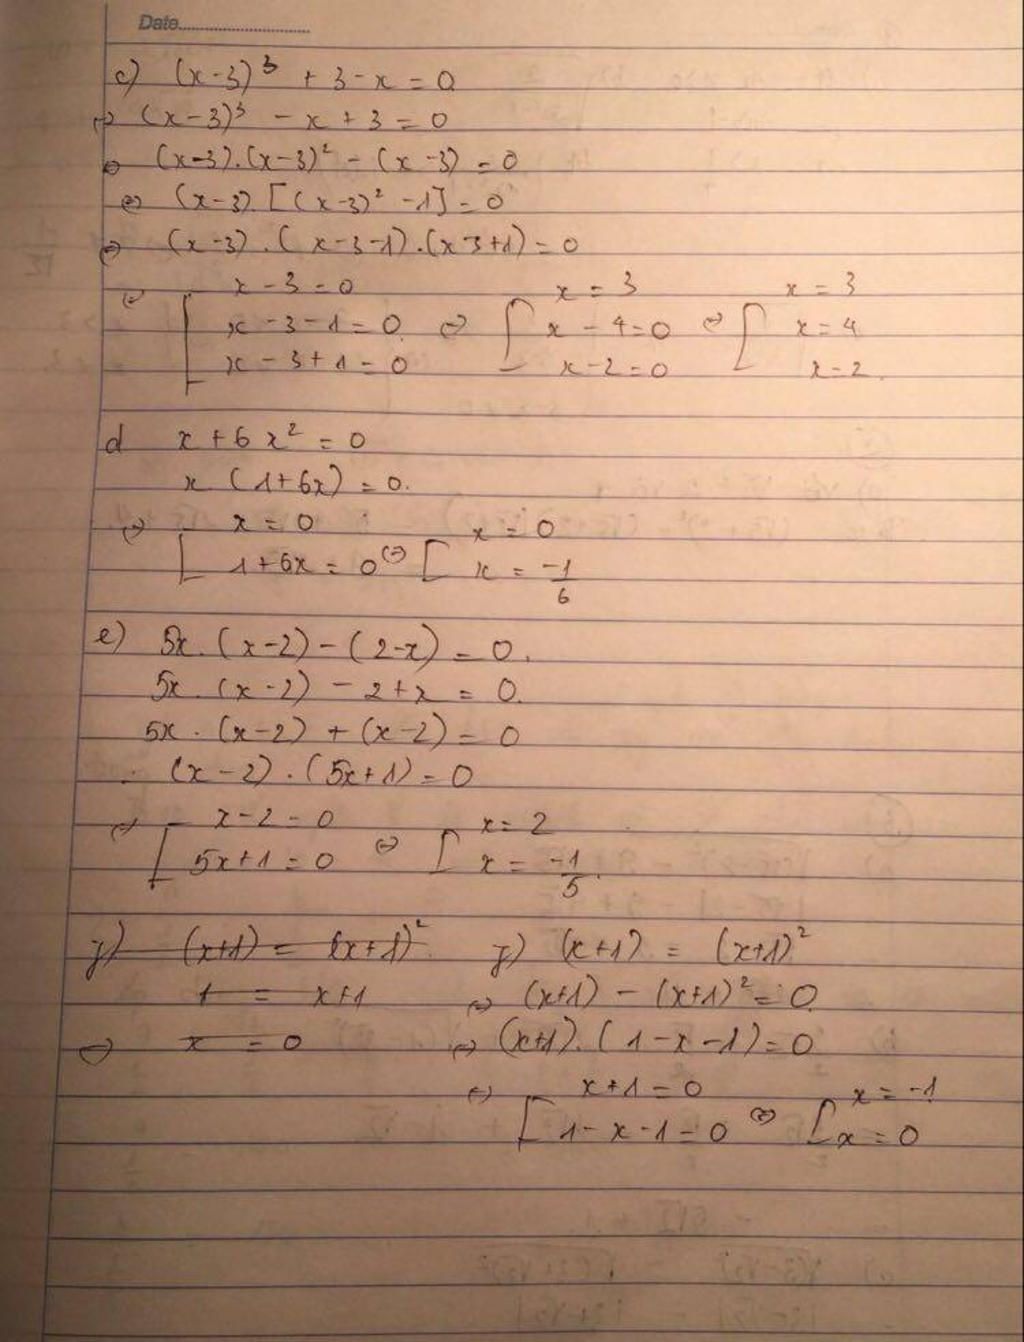 Date
c) (x-3)³ + 3 - x = 0
⇔ (x-3)³ - x + 3 = 0
⇔ (x-3).(x-3)² - (x-3) = 0
⇔ (x-3).[(x-3)² - 1] = 0
⇔ (x-3).(x-3-1).(x-3+1) = 0
⇔ [ x-3=0 ; x-3-1=0 ; x-3+1=0 ⇔ [ x=3 ; x-4=0 ; x-2=0 ⇔ [ x=3 ; x=4 ; x=2.
d x + 6x² = 0
x (1+6x) = 0.
⇔ [ x=0 ; 1+6x=0 ⇔ [ x=0 ; x = -1/6
e) 5x.(x-2) - (2-x) = 0.
5x.(x-2) - 2 + x = 0.
5x.(x-2) + (x-2) = 0
(x-2).(5x+1) = 0
⇔ [ x-2=0 ; 5x+1=0 ⇔ [ x=2 ; x = -1/5.
g) (x+1) = (x+1)²
1 = x+1
⇔ x = 0
g) (x+1) = (x+1)²
⇔ (x+1) - (x+1)² = 0
⇔ (x+1).(1-x-1) = 0
⇔ [ x+1=0 ; 1-x-1=0 ⇔ [ x=-1 ; x=0